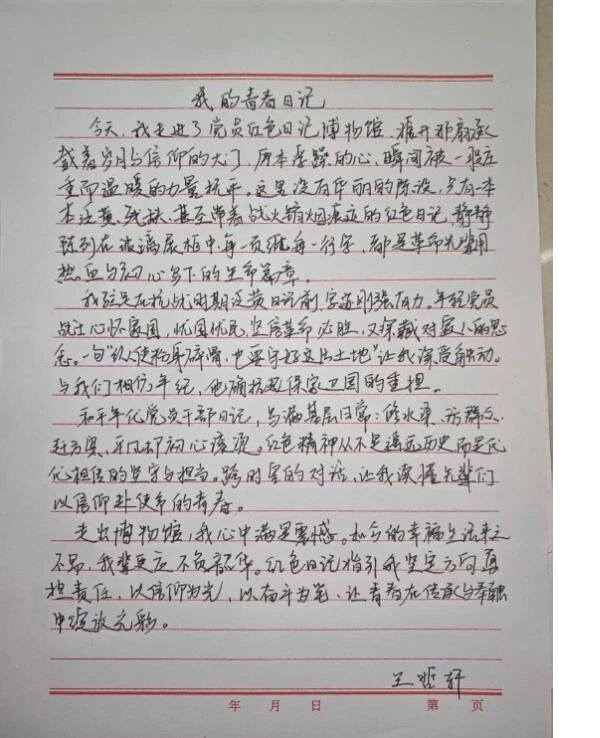 我的青春日记
今天,我走进了党员红色日记博物馆,推开那扇承
载着岁月与信仰的大门,原本浮躁的心,瞬间被一股庄
重而温暖的力量抚平。这里没有华丽的陈设,只有一本
本泛黄、残缺、甚至带着战火硝烟痕迹的红色日记,静静
陈列在玻璃展柜中,每一页纸每一行字,都是革命先辈用
热血与初心写下的生命篇章。
我驻足在抗战时期泛黄日记前,字迹刚强有力。年轻党员
战士心怀家国,忧国忧民,坚信革命必胜,又深藏对家人的思
念。一句“纵使粉身碎骨,也要守好这片土地”让我深受触动。
与我们相仿年纪,他确扛起保家卫国的重担。
和平年代党员干部日记,写满基层日常:修水渠、访群众、
赶方案,平凡却初心滚烫。红色精神从不是遥远历史而是代
代相传的坚守与担当。跨时空的对话,让我读懂先辈们
以信仰赴使命的青春。
走出博物馆,我心中满是震撼。如今的幸福生活来之
不易,我辈更应不负韶华。红色日记指引我坚定方向勇
担责任,以信仰为光,以奋斗为笔,让青春在传承与奉献
中绽放光彩。
王哲轩
年 月 日 第 页